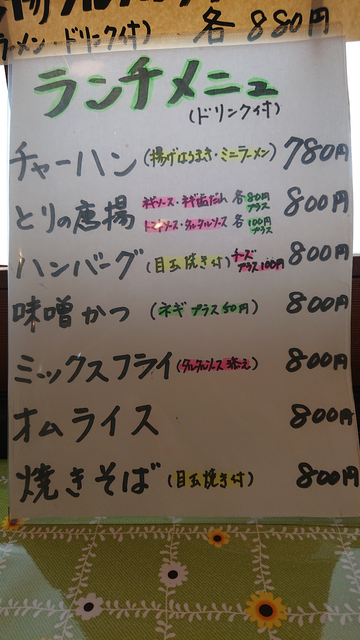 ラーメン・ドリンク付) 各880円
ランチメニュー
(ドリンク付)
チャーハン (揚げはるまき・ミニラーメン) 780円
とりの唐揚 ネギソース・ネギ塩だれ 各80円プラス 800円
トマトソース・タルタルソース 各100円プラス
ハンバーグ (目玉焼き付) チーズプラス100円 800円
味噌かつ (ネギプラス50円) 800円
ミックスフライ (タルタルソース添え) 800円
オムライス 800円
焼きそば (目玉焼き付) 800円